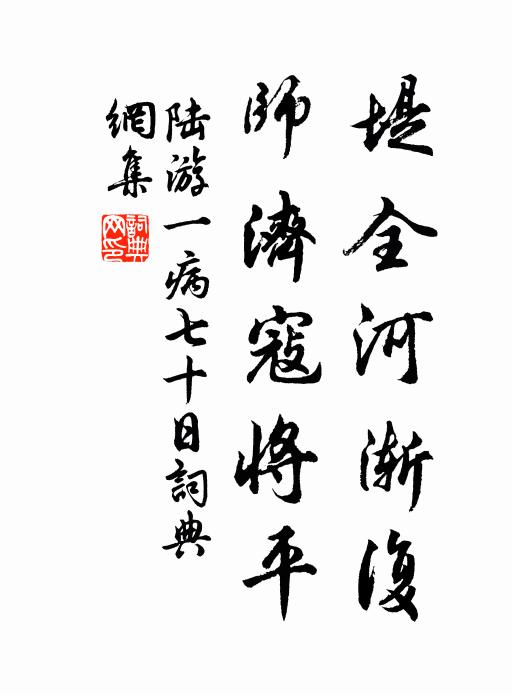 堤全河漸復
師濟寇將平
陆游一病七十日詞典
網集
詞典
网印